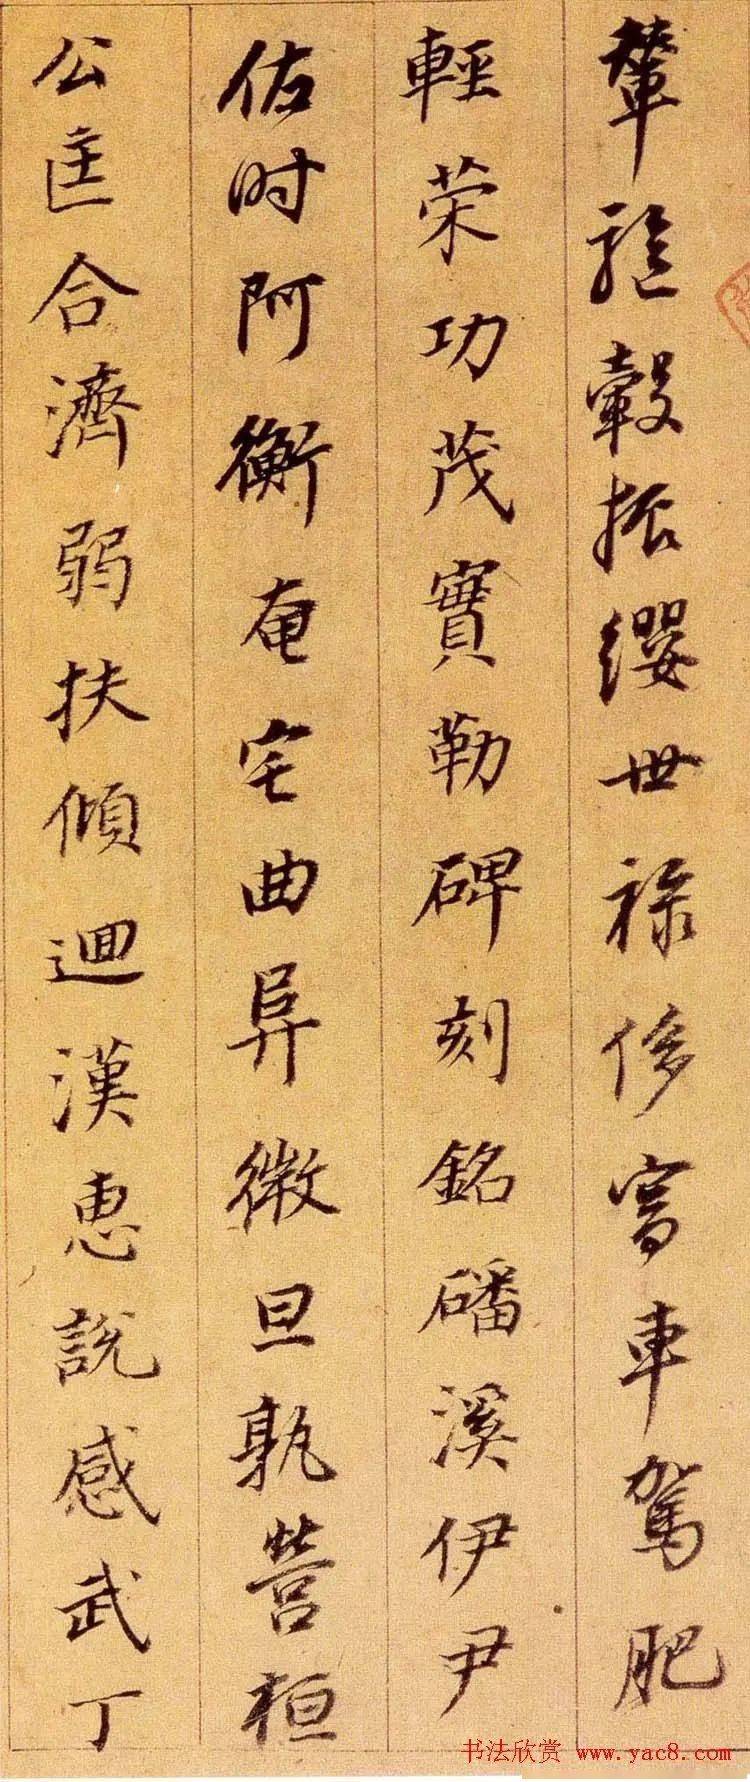 輦驱轂振纓世禄侈富車驾肥
輕荣功茂實勒碑刻銘磻溪伊尹
佐时阿衡奄宅曲阜微旦孰營桓
公匡合濟弱扶傾迴漢惠說感武丁
书法欣赏 www.yac8.com